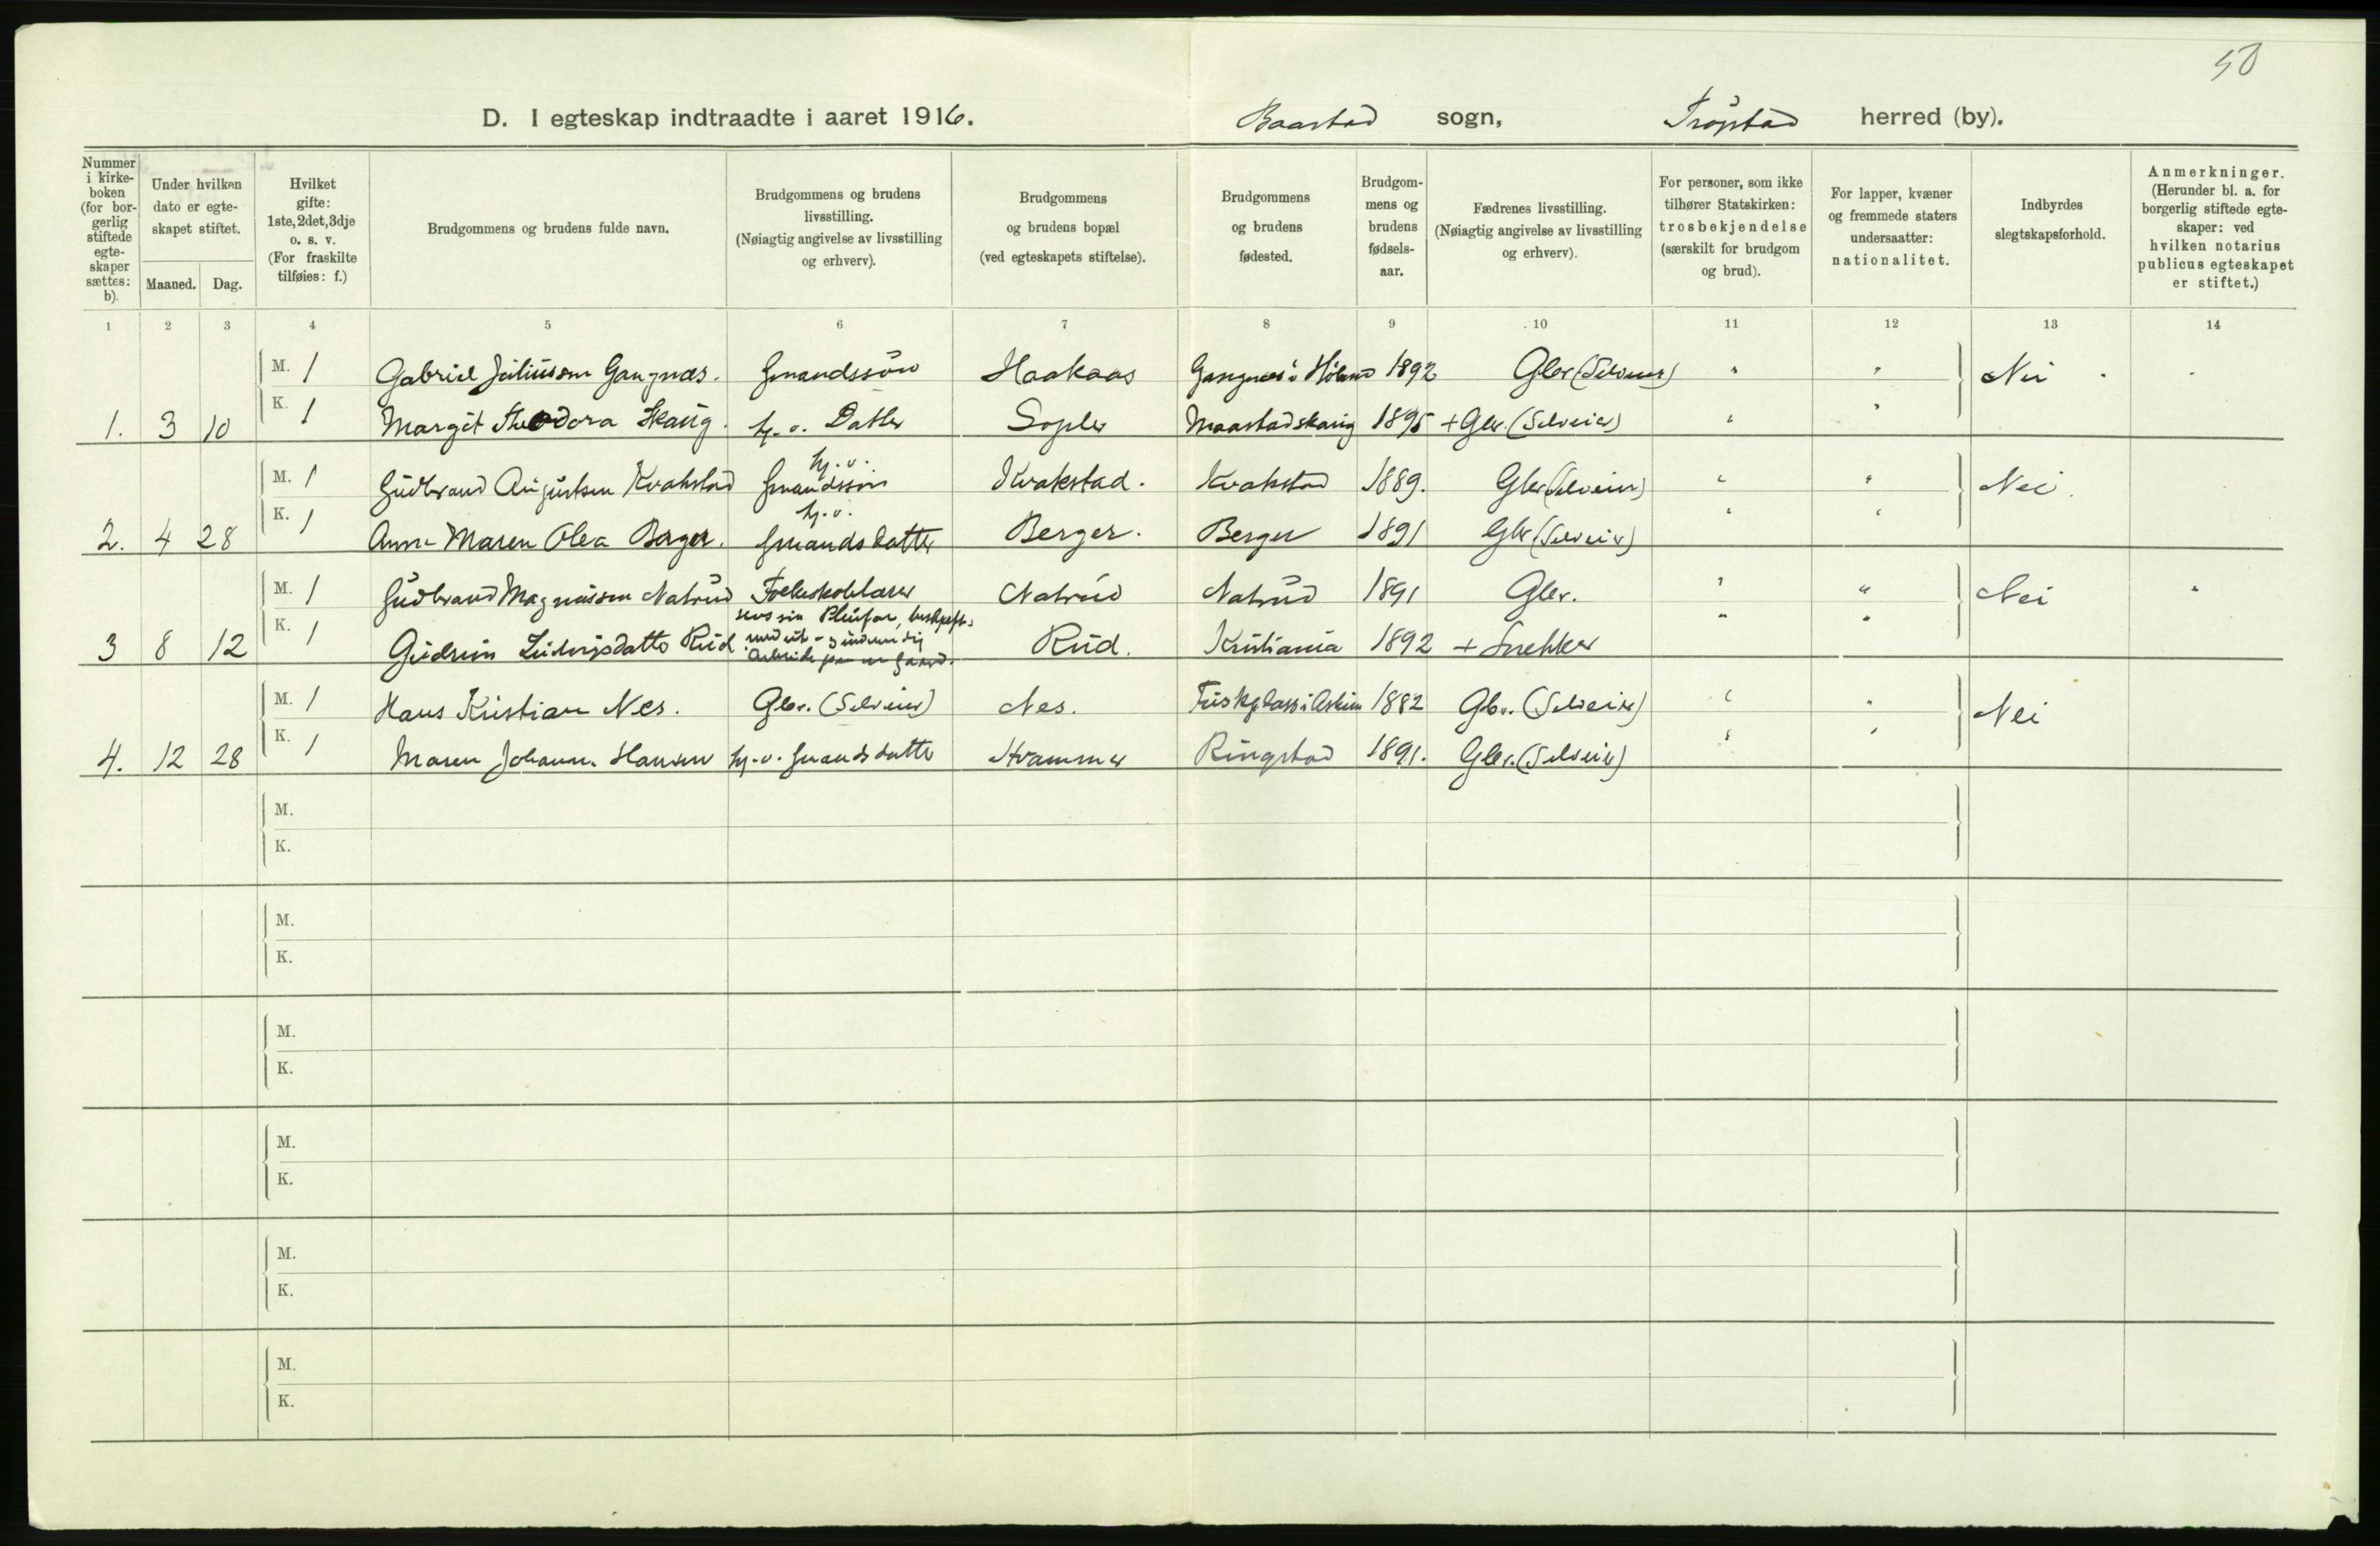 50
D. I egteskap indtraadte i aaret 1916. Baastad sogn, Trøgstad herred (by).
Nummer i kirke-boken (for bor-gerlig stiftede egte-skaper sættes: b).
Under hvilken dato er egte-skapet stiftet.
Maaned. Dag.
Hvilket gifte: 1ste, 2det, 3dje o. s. v. (For fraskilte tilføies: f.)
Brudgommens og brudens fulde navn.
Brudgommens og brudens livsstilling. (Nøiagtig angivelse av livsstilling og erhverv).
Brudgommens og brudens bopæl (ved egteskapets stiftelse).
Brudgommens og brudens fødested.
Brudgom-mens og brudens fødsels-aar.
Fædrenes livsstilling. (Nøiagtig angivelse av livsstilling og erhverv).
For personer, som ikke tilhører Statskirken: trosbekjendelse (særskilt for brudgom og brud).
For lapper, kvæner og fremmede staters undersaatter: nationalitet.
Indbyrdes slegtskapsforhold.
Anmerkninger. (Herunder bl. a. for borgerlig stiftede egte-skaper: ved hvilken notarius publicus egteskapet er stiftet.)
1 2 3 4 5 6 7 8 9 10 11 12 13 14
M. 1 Gabriel Juliussen Gangnæs. Gmandssøn Haakaas Gangnæs i Høland 1892 Gbr. (Selveier) " " Nei
1. 3 10 K. 1 Margit Theodora Skaug. hj. v. Datter Sopler Maastadskaug 1895 + Gbr. (Selveier) " "
hj. v.
M. 1 Gudbrand Augustsen Kvakstad Gmandssøn Kvakstad. Kvakstad 1889. Gbr (Selveier) " " Nei.
hj. v.
2. 4 28 K. 1 Anna Maren Olea Berger. Gmandsdatter Berger. Berger 1891 Gbr (Selveier) " "
M. 1 Gudbrand Magnussen Natrud Folkeskolelærer Natrud Natrud 1891 Gbr. " " Nei
hos sin Pleiefar, beskjæft.
med ut- og indvendig
3 8 12 K. 1 Gudrun Ludvigsdatter Rud Arbeide paa en gaard. Rud. Kristiania 1892 + Snekker " "
M. 1 Hans Kristian Nes. Gbr. (Selveier) Nes. i Askim 1882 Gbr. (Selveier) " " Nei
4. 12 28 K. 1 Maren Johanne Hansen hj. v. Gmandsdatter Krammer Ringstad 1891. Gbr. (Selveier) " "
M.
K.
M.
K.
M.
K.
M.
K.
M.
K.
M.
K.